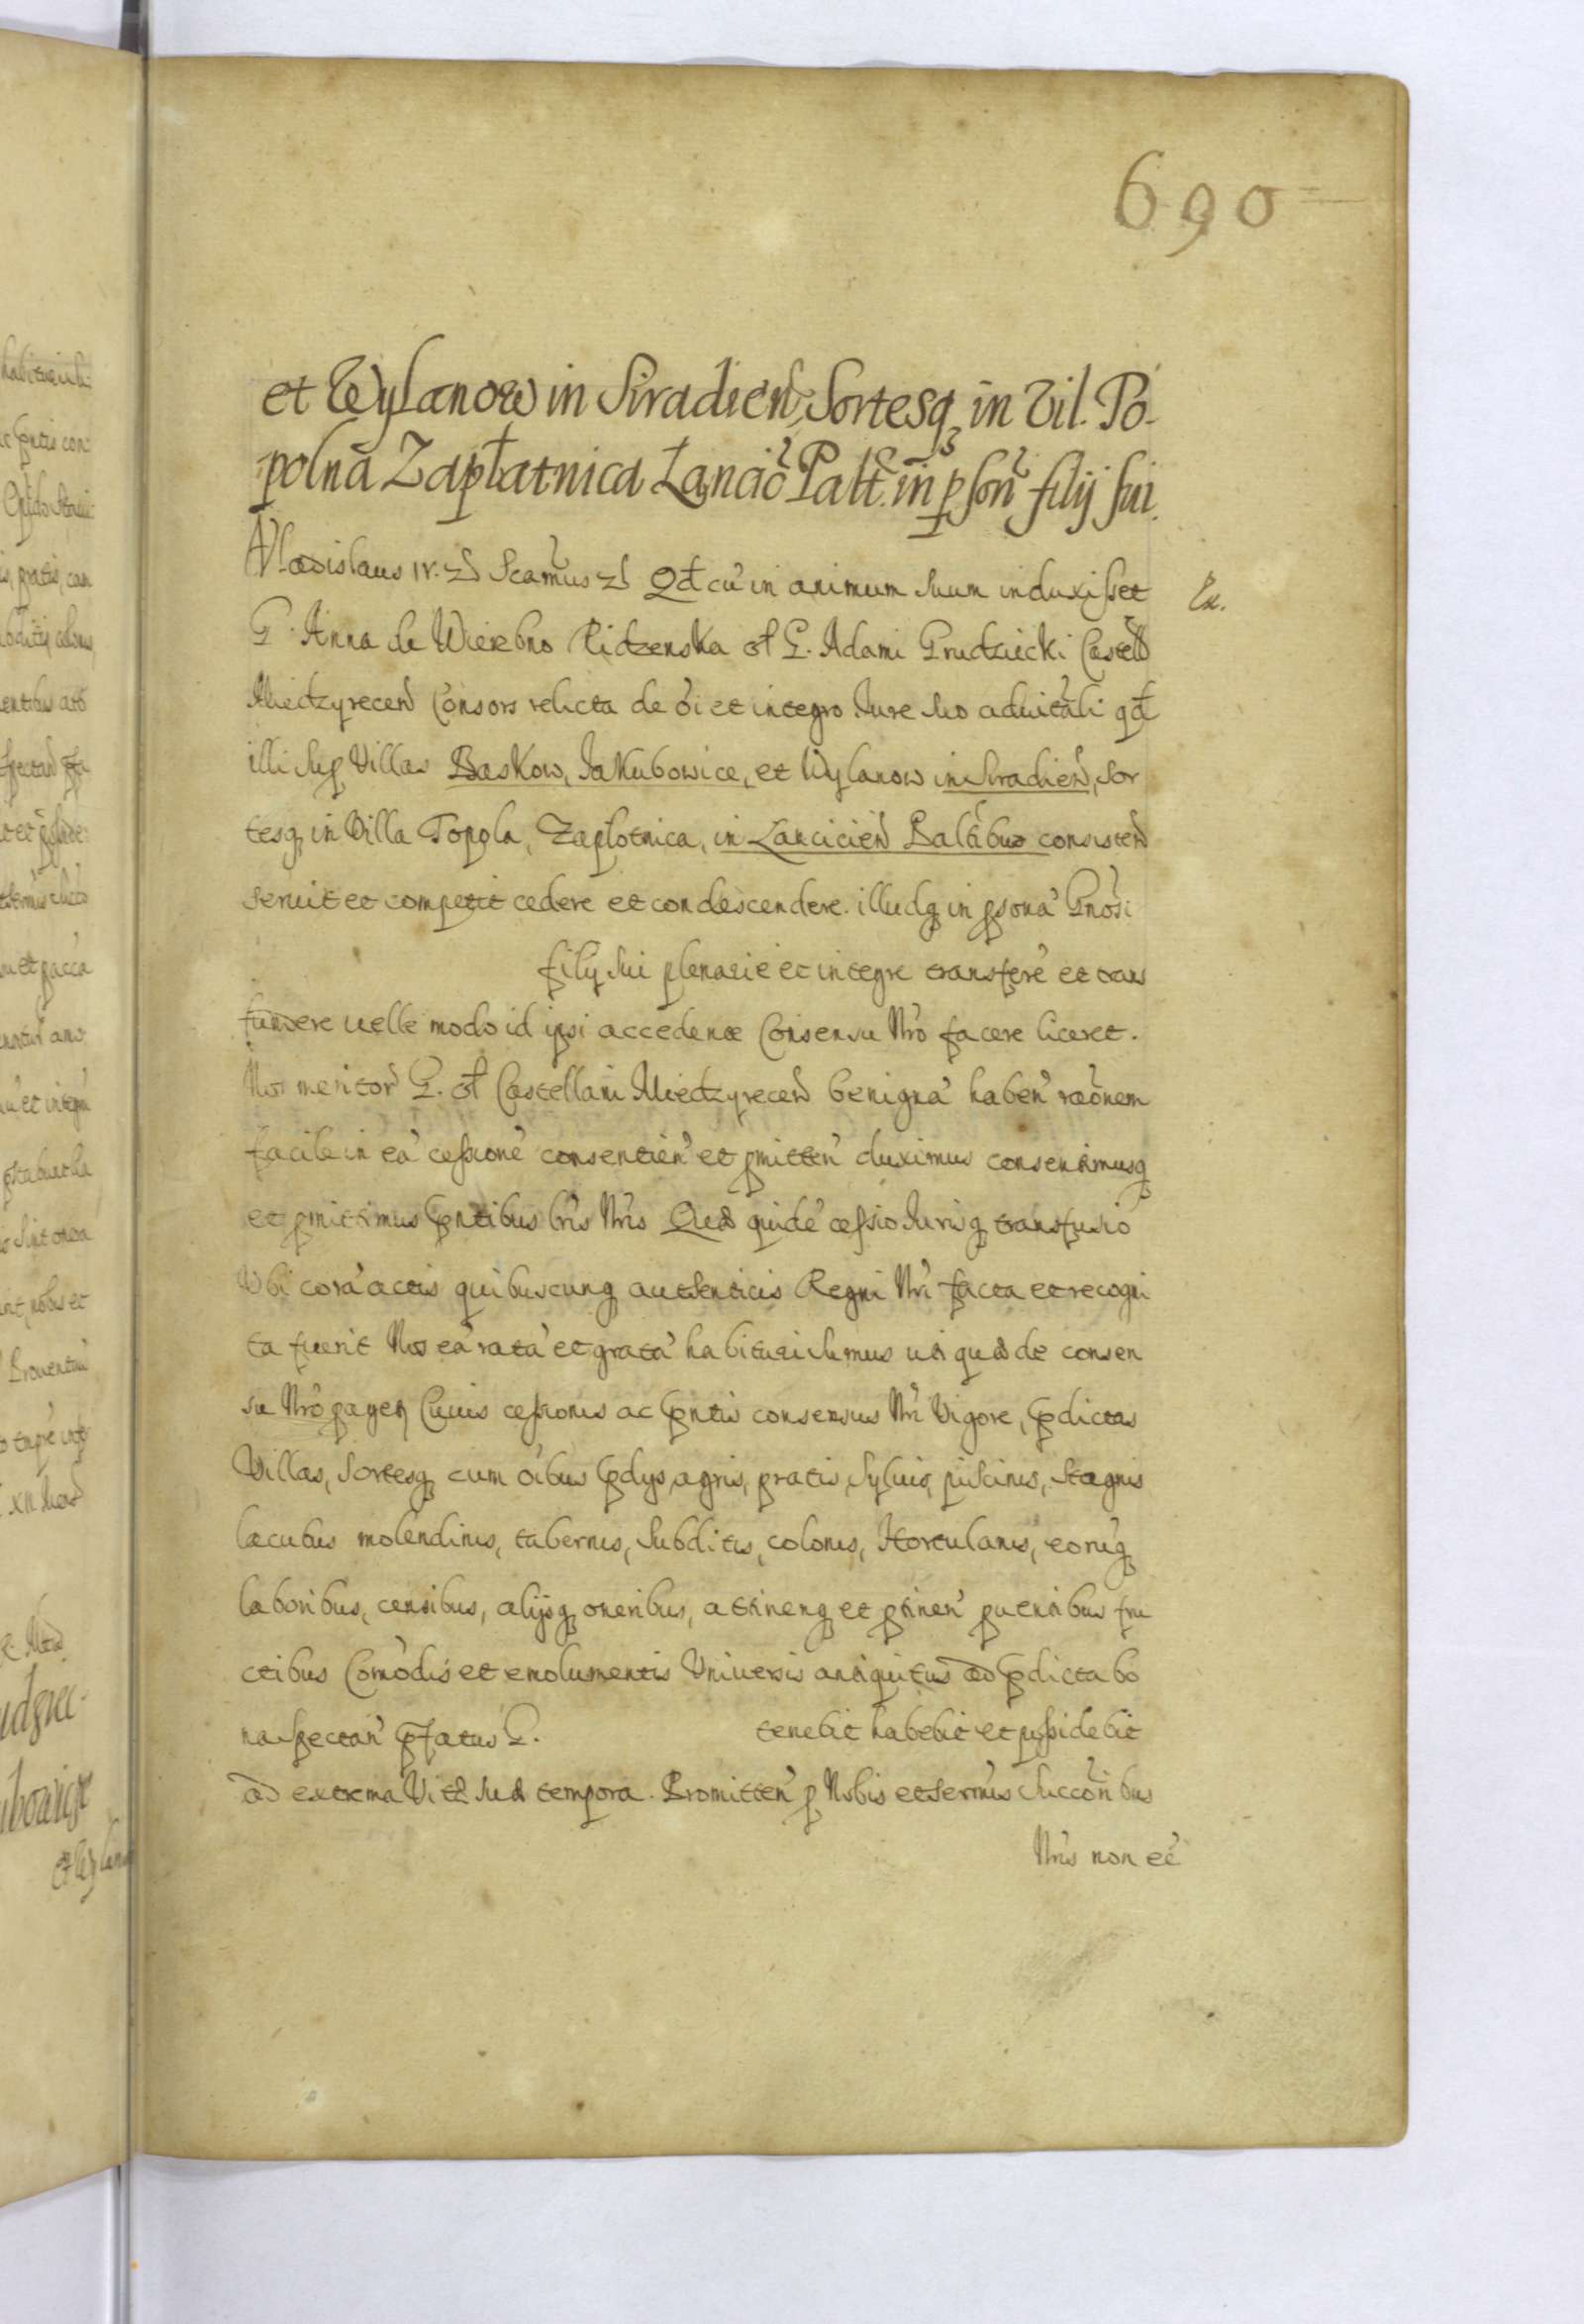 690
et Wylanow in Siradień, Sortesq in Vil. To-
polna Zapłatnica Lancić Palt. in pson filij sui.
Vladislaus IV. Scamus Qd cu in animum suum induxisset
Ex.
G. Anna de Wierzbno Ridzenska ol G. Adami Grudziecki Castell
Miedzyrecen Consors relicta de oi et integro Iure suo aduitali qd
illi sup Villas Baskow, Jakubowice, et Wylanow in Siradien, Sor
tesq in Villa Topola, Zaplotnica, in Lancicien Paltibus consisten
seruit et competit cedere et condescendere. illudq in psona Gnosi
filij sui plenarie et integre transfere et trans
fundere uelle modo id ipsi accedente Consensu Nro facere liceret.
Nos meritor G. ol Castellani Miedzyrecen benigna haben raonem
facile in ea cessione consentien et pmitten duximus consentimusq
et pmittimus pntibus lris Nris Quae quide cessio Iurisq transfusio
Vbi cora actis quibuscunq autenticis Regni Nri facta et recogni
ta fuerit Nos ea rata et grata habituri sumus uti quae de consen
su Nro pagen Cuius cessionis ac pntis consensus Nri Vigore, pdictas
Villas, Sortesq cum oibus pdys, agris, pratis, syluis, piscinis, stagnis
lacubus molendinis, tabernis, subditis, colonis, Hortulanis, eoruq
laboribus, censibus, alijsq oneribus, attineng et ptinen puentibus fru
ctibus Comodis et emolumentis Vniuersis antiquitus ad pdicta bo
na spectan pfatus G. tenebit habebit et possidebit
ad extrema Vitae suae tempora. Promitten p Nobis et Sermis Succoribus
Nris non ee